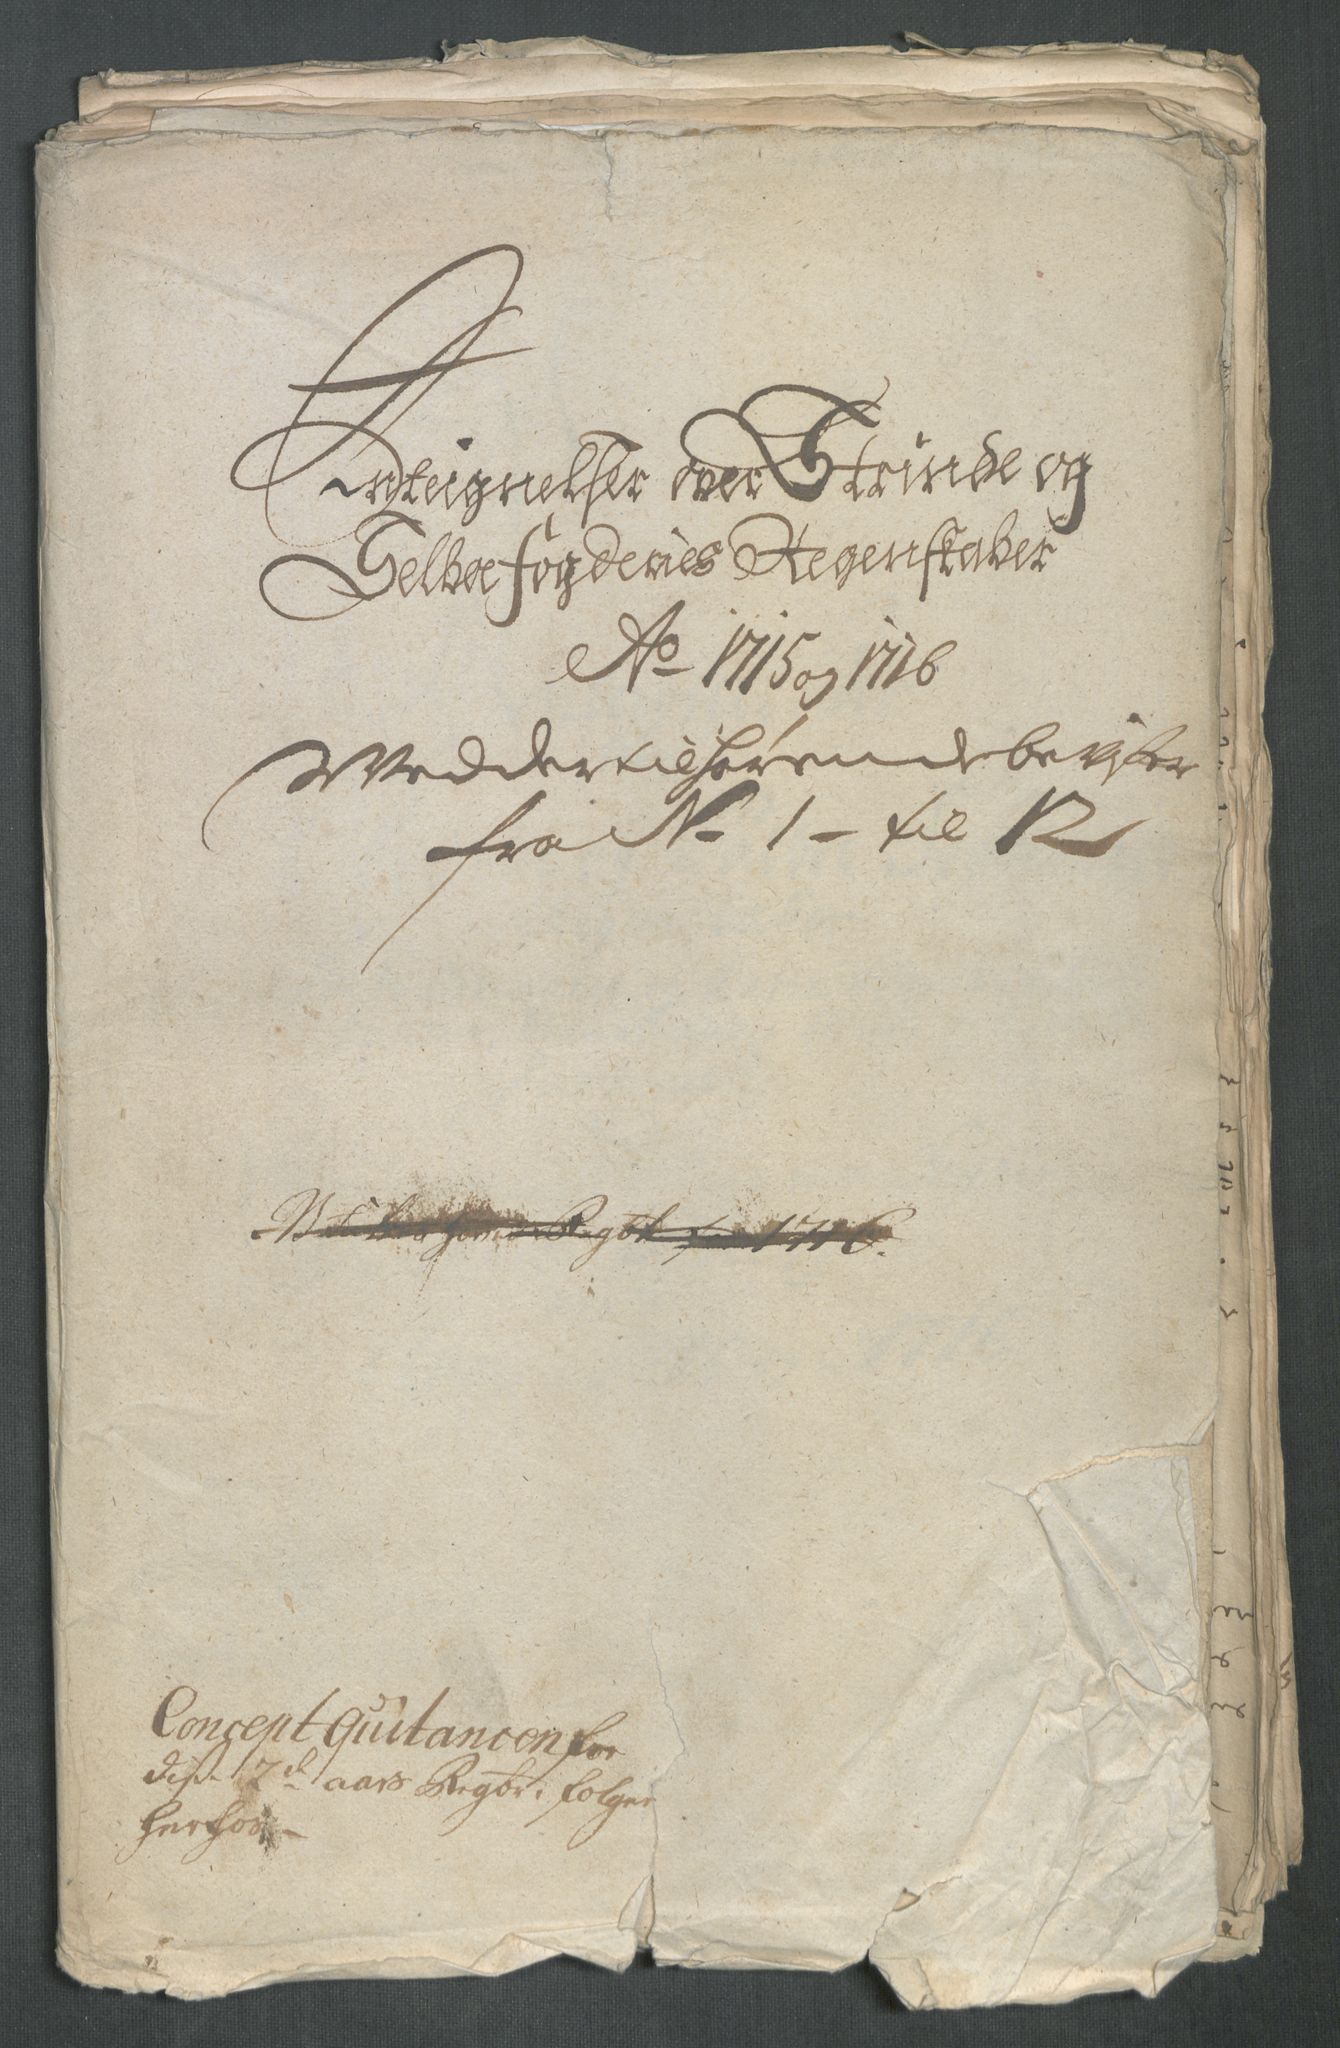 Anteignelser over Strinde og
Selboe fogderies Regenskaber
Ao 1715 og 1716
Med dertilhørende beviser
fra No 1 - til 12
for 1716.
Concept Quitancen for
disse 2de aars Regbr. følger
herhos -